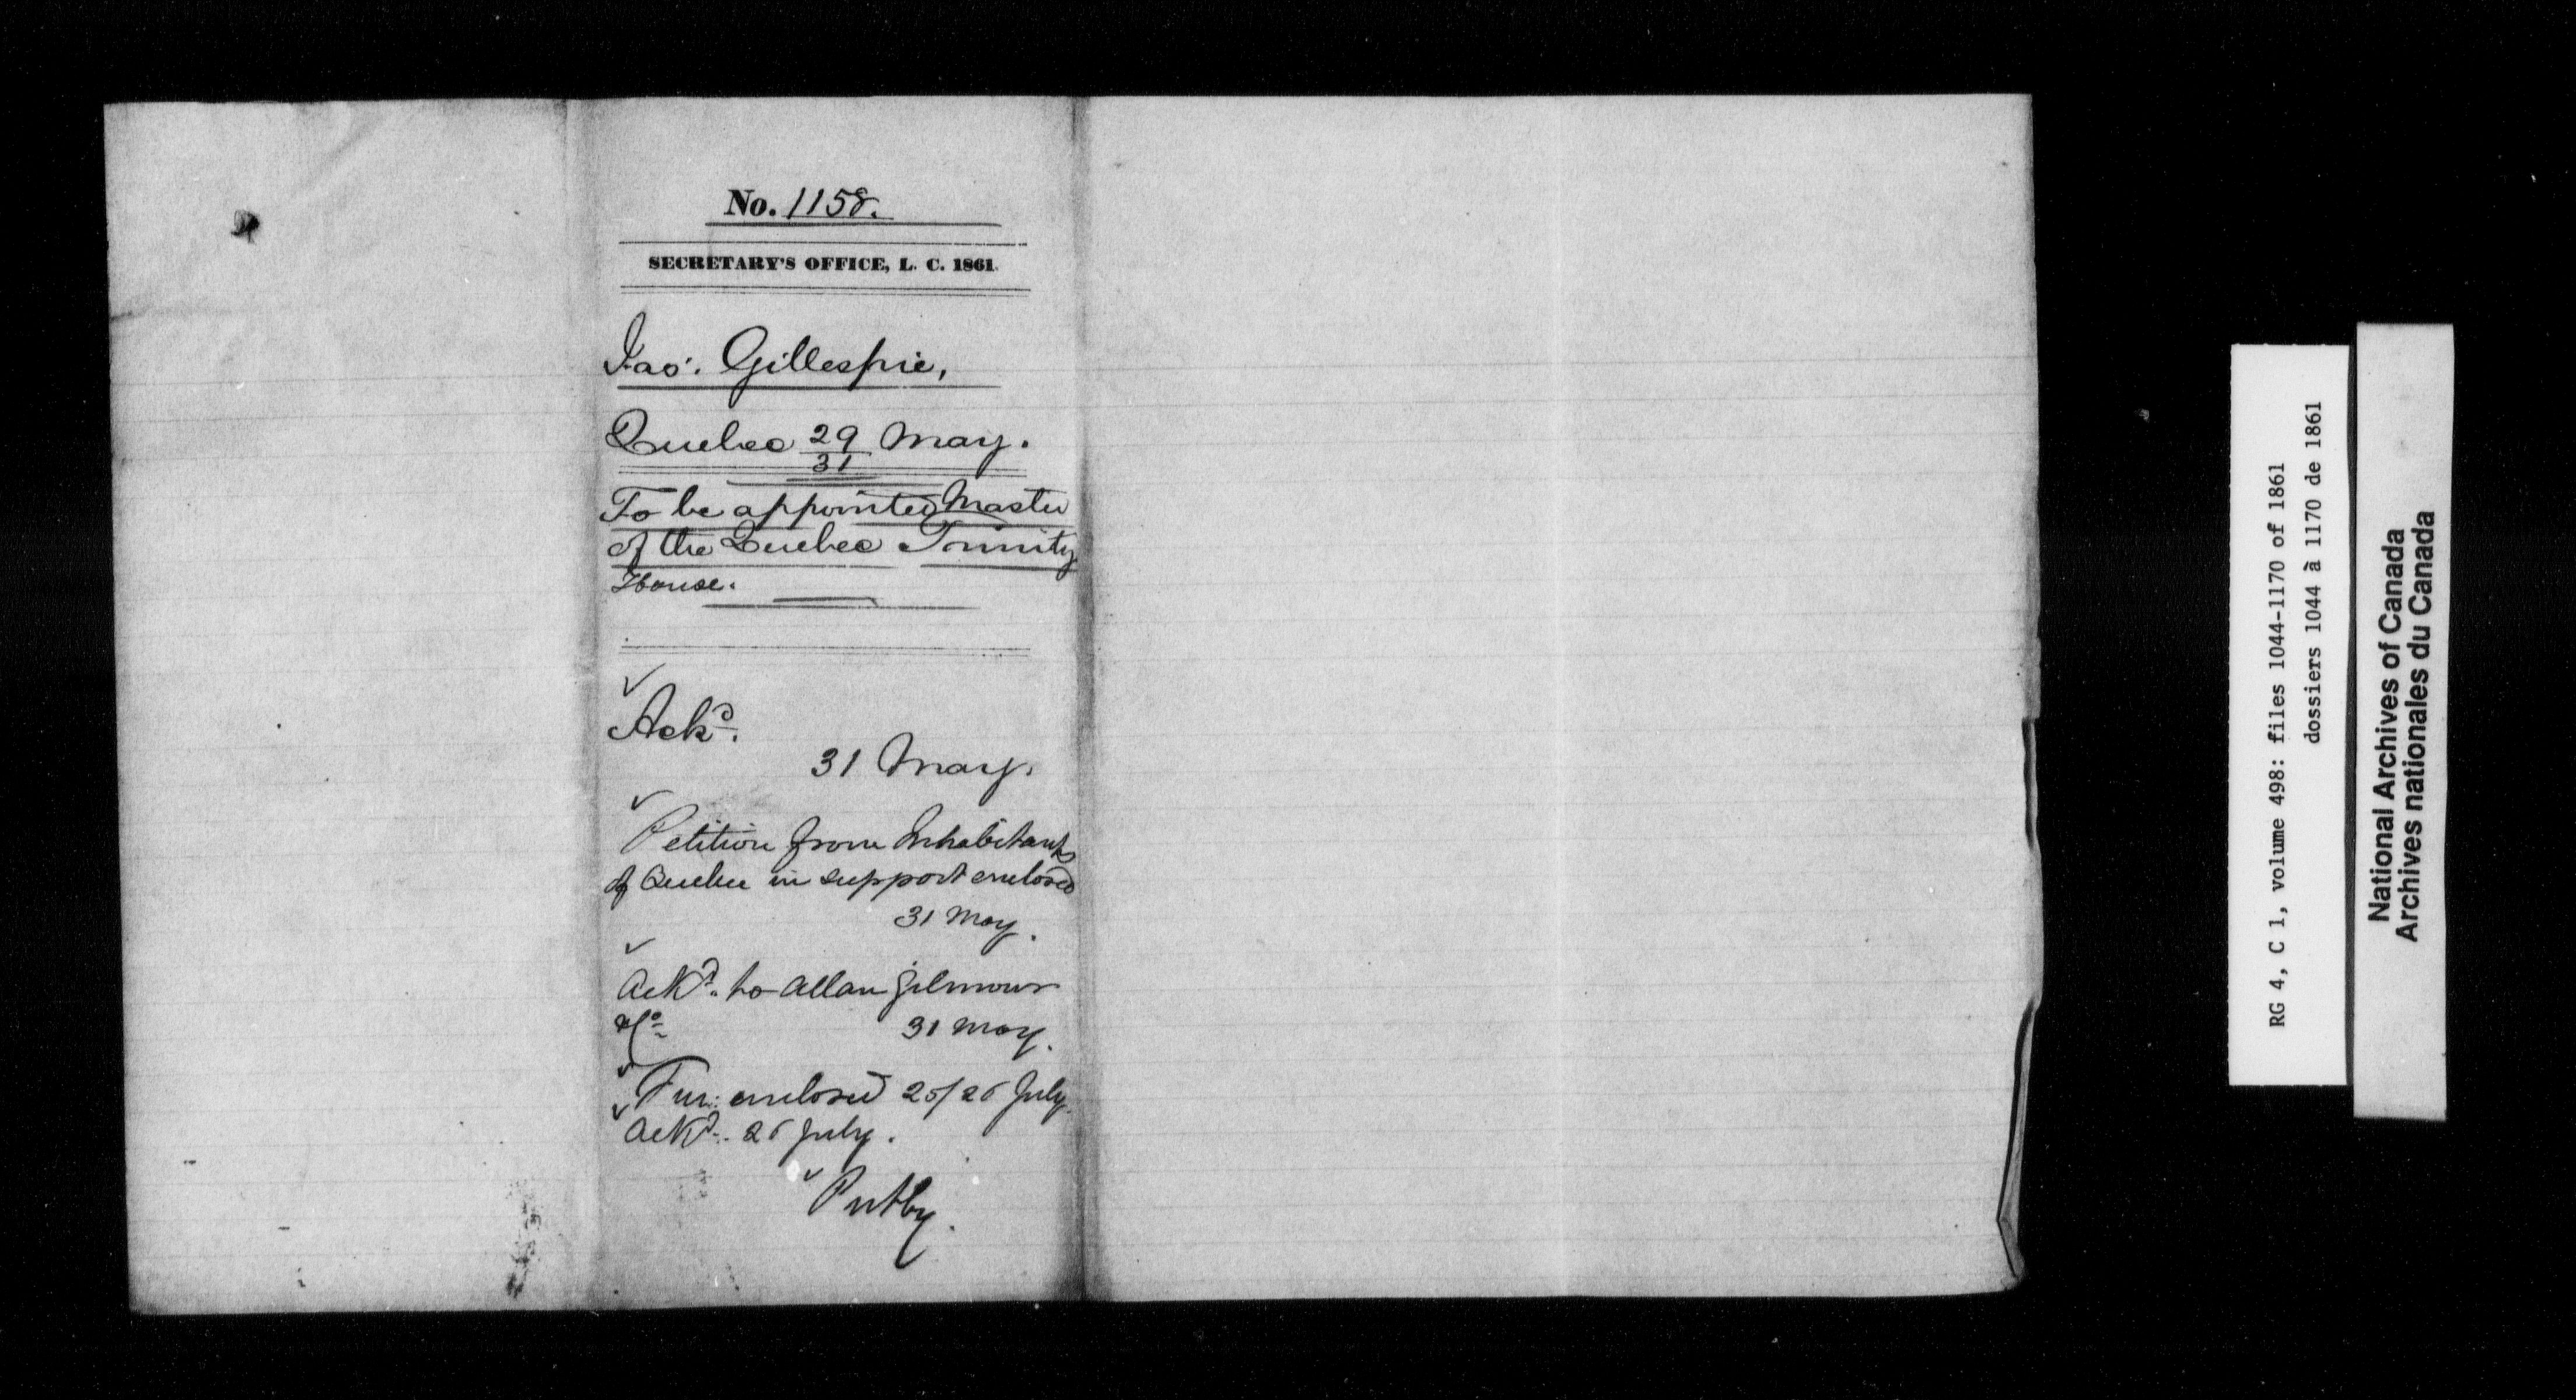 No. 1158.
SECRETARY'S OFFICE, L. C. 1861.
Jas. Gillespie,
Quebec 29/31 May.
To be appointed Master
of the Quebec Trinity
House.
Ackd.
31 May.
Petition from Inhabitants
of Quebec in support enclosed
31 May.
Ackd. to Allan Gilmour
&Co
31 May.
Fur: enclosed 25/26 July.
Ackd. 26 July.
RG 4, C 1, volume 498: files 1044-1170 of 1861
dossiers 1044 à 1170 de 1861
National Archives of Canada
Archives nationales du Canada